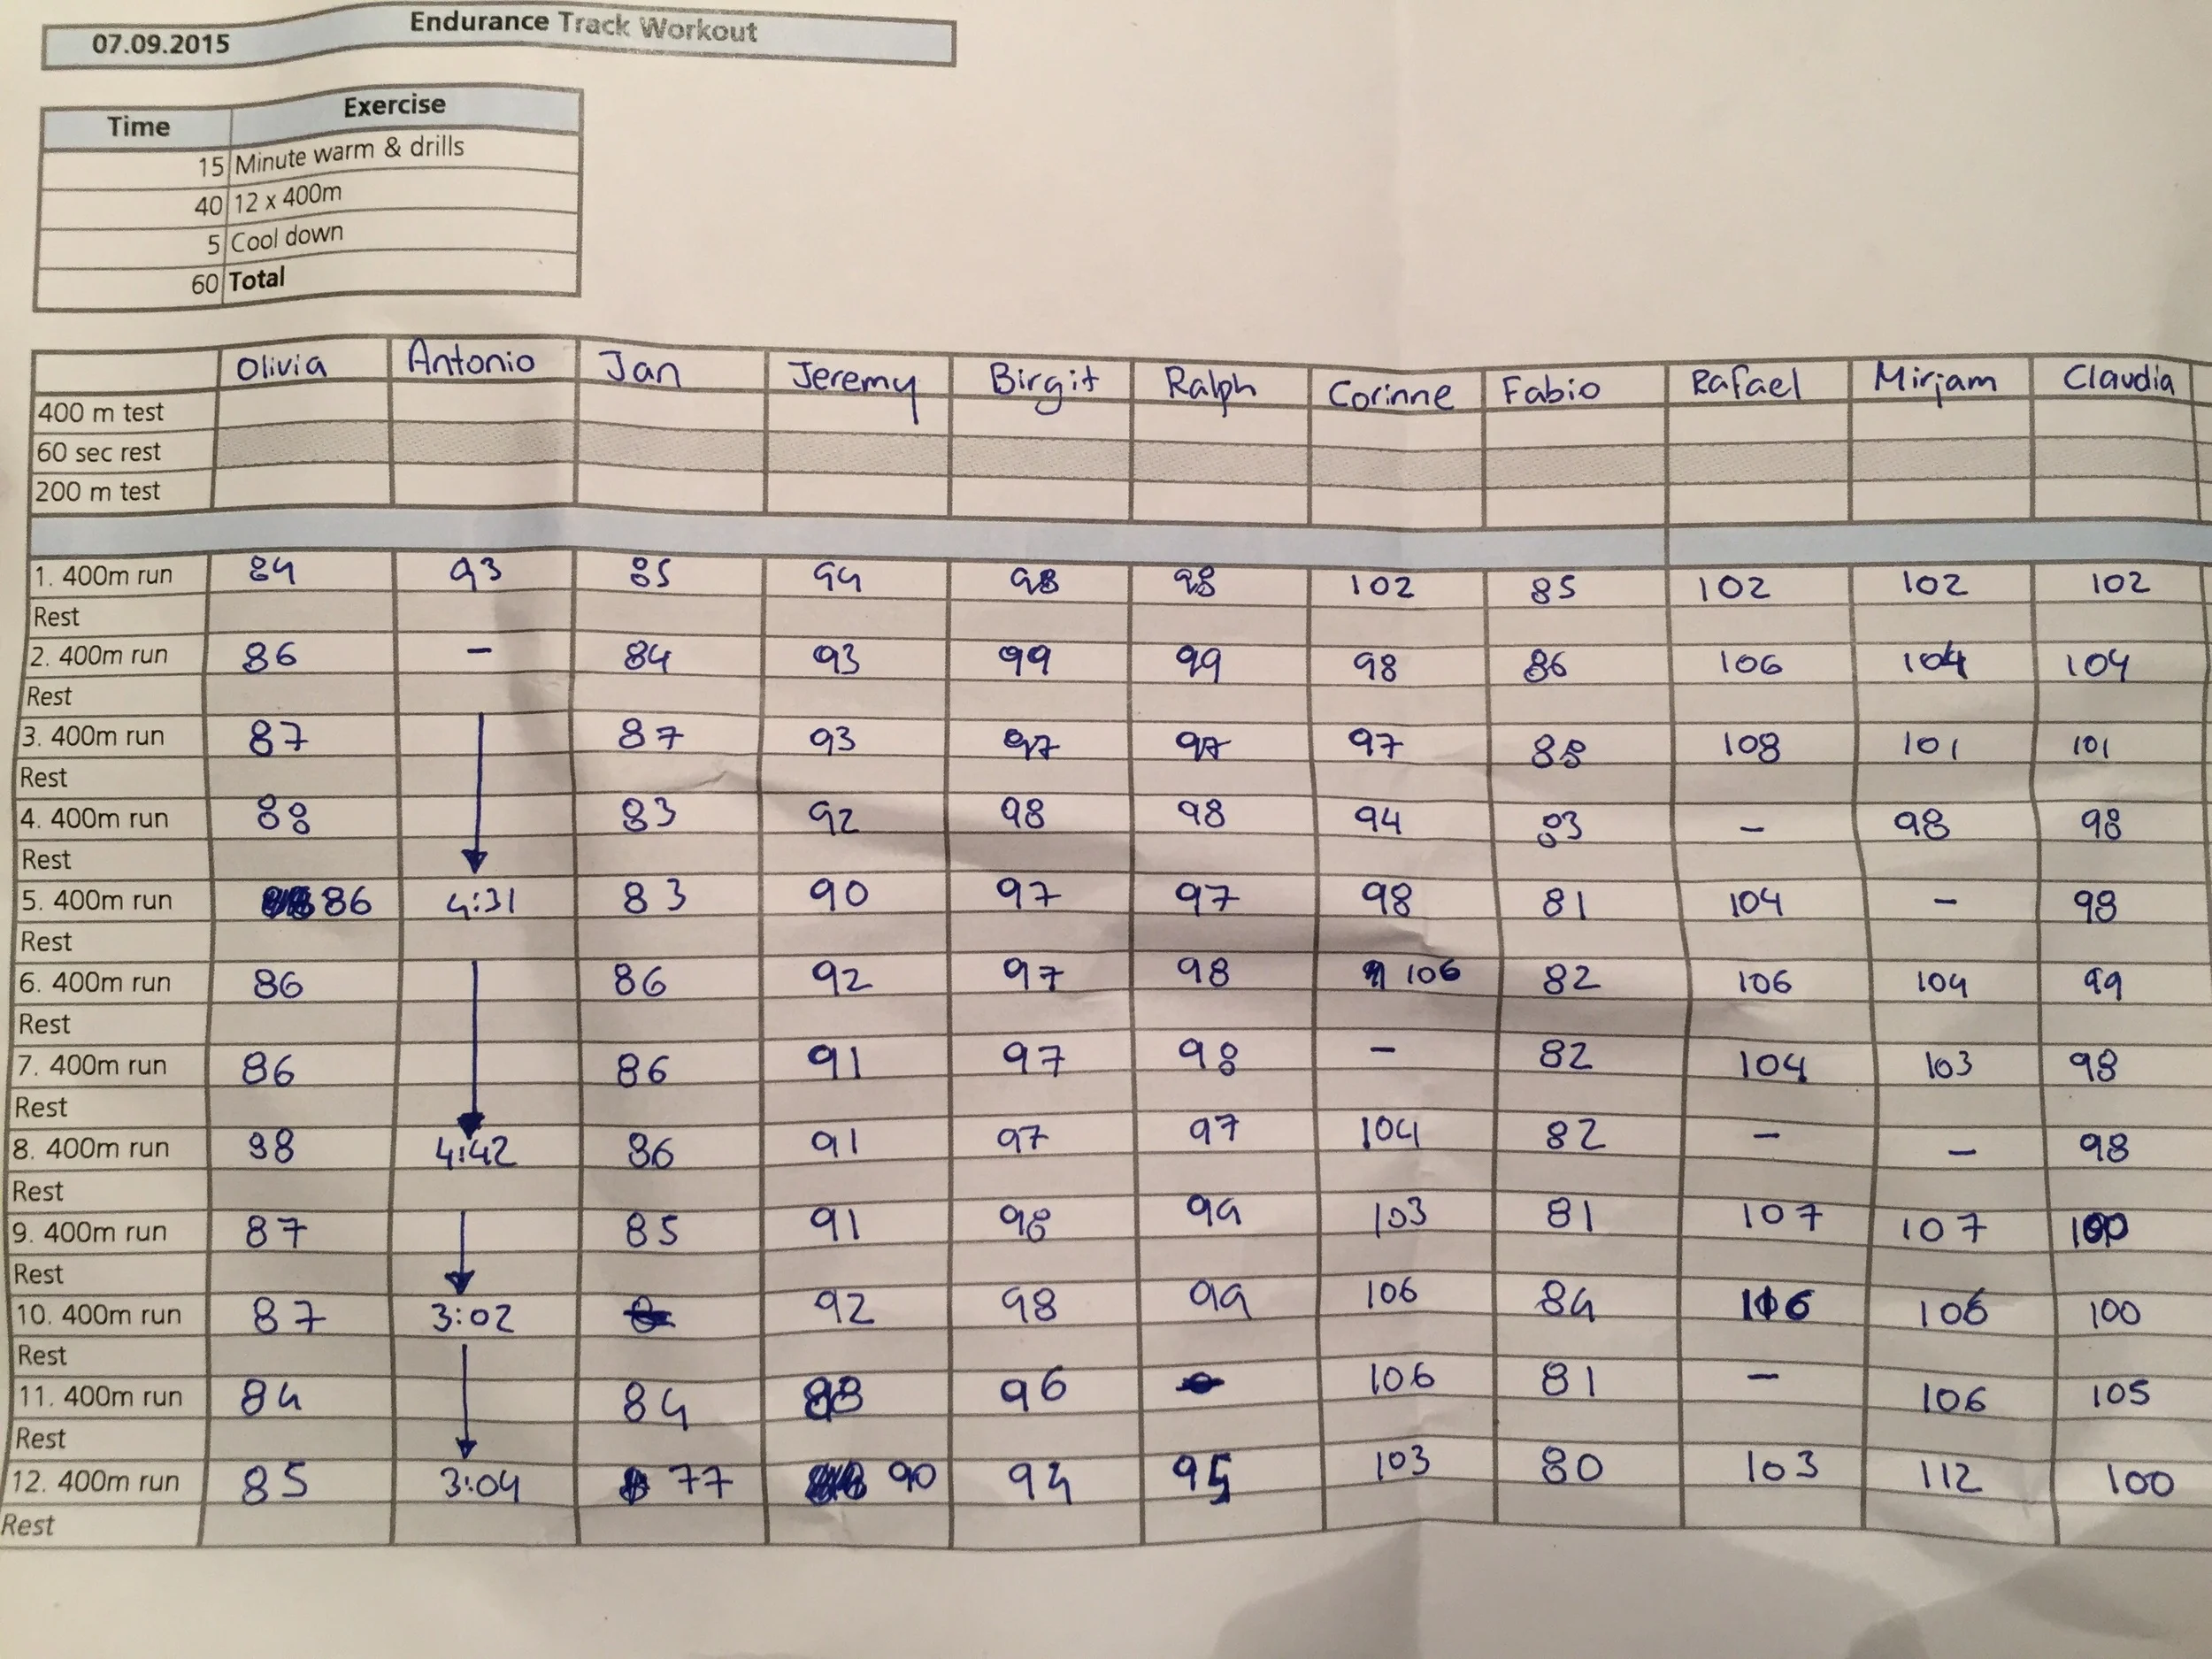 07.09.2015 Endurance Track Workout
Time Exercise
15 Minute warm & drills
40 12 x 400m
5 Cool down
60 Total
Olivia Antonio Jan Jeremy Birgit Ralph Corinne Fabio Rafael Mirjam Claudia
400 m test
60 sec rest
200 m test
1. 400m run 84 93 85 94 98 98 102 85 102 102 102
Rest
2. 400m run 86 - 84 93 99 99 98 86 106 104 104
Rest
3. 400m run 87 87 93 97 97 97 85 108 101 101
Rest
4. 400m run 88 83 92 98 98 94 83 - 98 98
Rest
5. 400m run 86 4:31 83 90 97 97 98 81 104 - 98
Rest
6. 400m run 86 86 92 97 98 106 82 106 104 99
Rest
7. 400m run 86 86 91 97 98 - 82 104 103 98
Rest
8. 400m run 88 4:42 86 91 97 97 104 82 - - 98
Rest
9. 400m run 87 85 91 98 99 103 81 107 107 100
Rest
10. 400m run 87 3:02 92 98 99 106 84 106 106 100
Rest
11. 400m run 84 84 96 106 81 - 106 105
Rest
12. 400m run 85 3:04 77 90 94 95 103 80 103 112 100
Rest